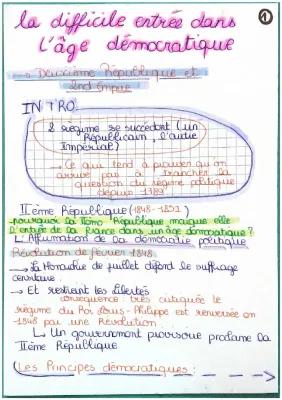 la difficile entrée dans
l'âge démocratique
①
→ Deuxième République et
2nd Empire
INTRO
2 régime se succèdent (un
Républicain, l'autre
Impérial)
→ Ce qui tend à prouver qu'on
arrive pas à trancher la
question du régime politique
depuis 1789
IIème République (1848-1851)
pourquoi la IIème République marque elle
l'entrée de la France dans un âge démocratique?
L'Affirmation de la démocratie politique
Révolution de février 1848
→ La Monarchie de juillet défend le suffrage
censitaire.
→ Et restreint les libertés
conséquence: très critiquée le
régime du Roi Louis-Philippe est renversée en
1848 par une Révolution
↳ Un gouvernement provisoire proclame la
IIème République
Les Principes démocratiques: